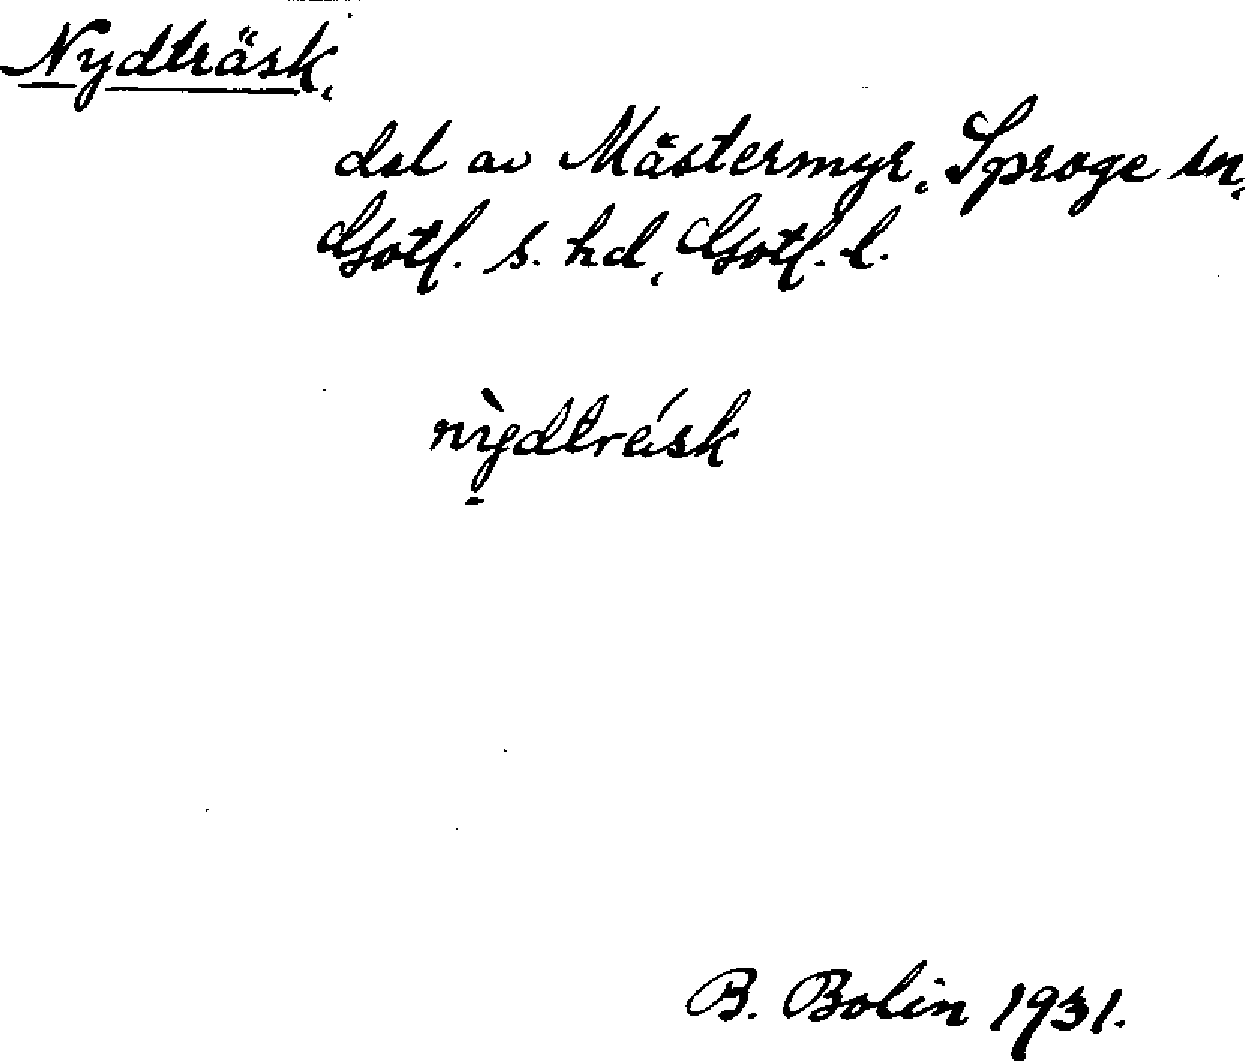 Nydträsk,
del av Mästermyr, Sproge sn,
Gotl. s. hd, Gotl. l.
nỳdtrésk
B. Bolin 1931.